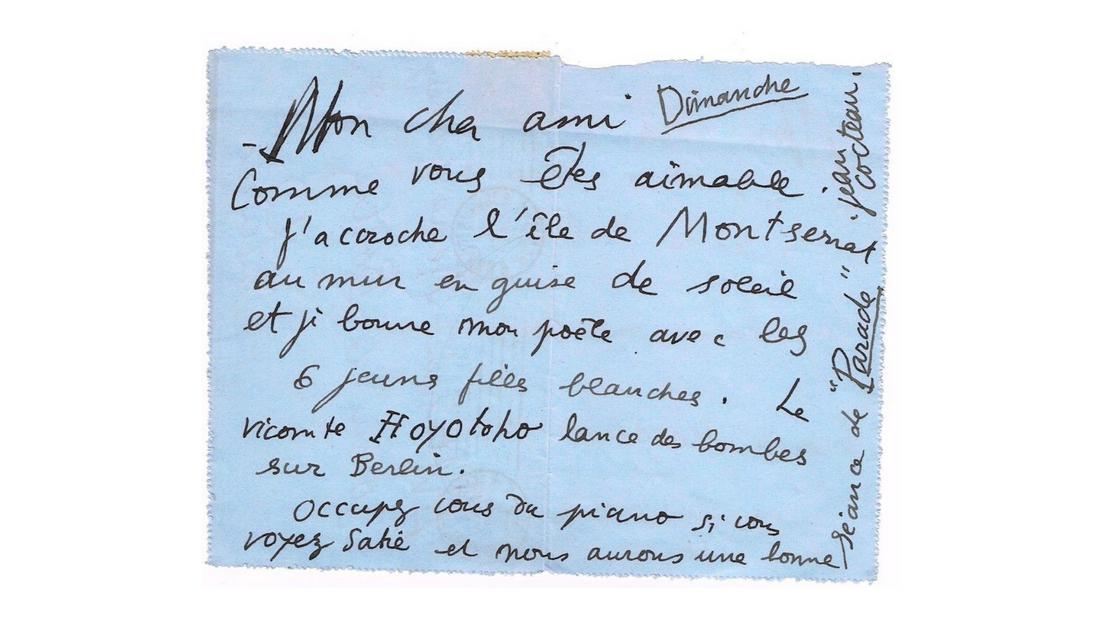 Dimanche
Mon cher ami
Comme vous êtes aimable.
J'accroche l'île de Montserrat
au mur en guise de soleil
et je bourre mon poêle avec les
6 jeunes filles blanches. Le
vicomte Hoyotoho lance des bombes
sur Berlin.
Occupez vous du piano si vous
voyez Satie et nous aurons une bonne
séance de "Parade"
jean cocteau.